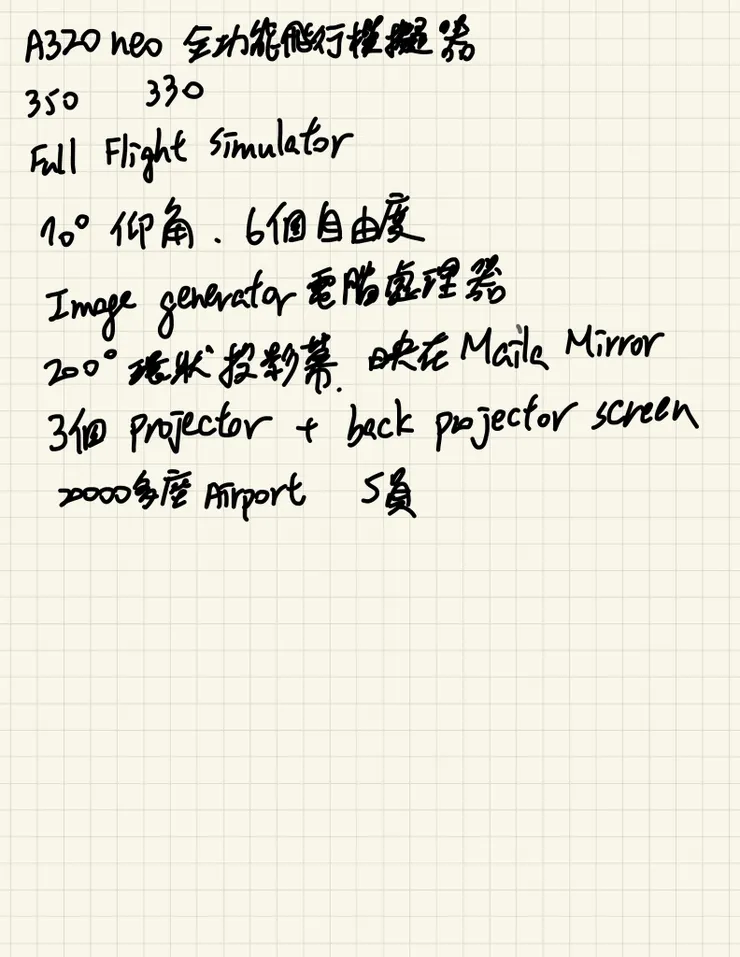 A320 neo 全功能飛行模擬器
350 330
Full Flight Simulator
10° 仰角. 6個自由度
Image generator 電腦處理器
200° 環狀投影幕. 映在 Maila Mirror
3個 projector + back projector screen
20000多座 Airport 5員